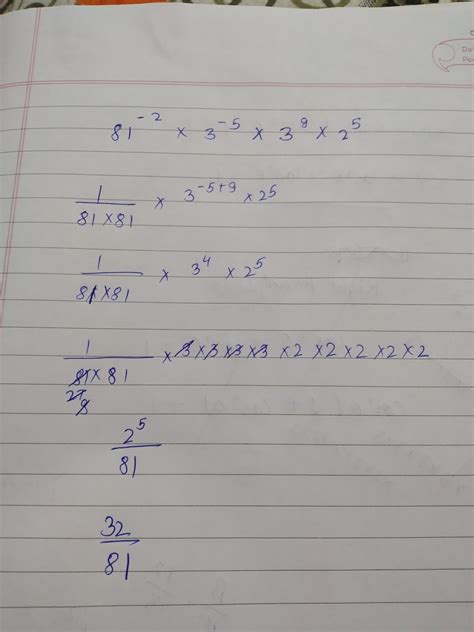 81⁻² × 3⁻⁵ × 3⁹ × 2⁵
1/(81×81) × 3⁻⁵⁺⁹ × 2⁵
1/(81×81) × 3⁴ × 2⁵
1/(81×81) × 3×3×3×3 × 2×2×2×2×2
27
2⁵/81
32/81